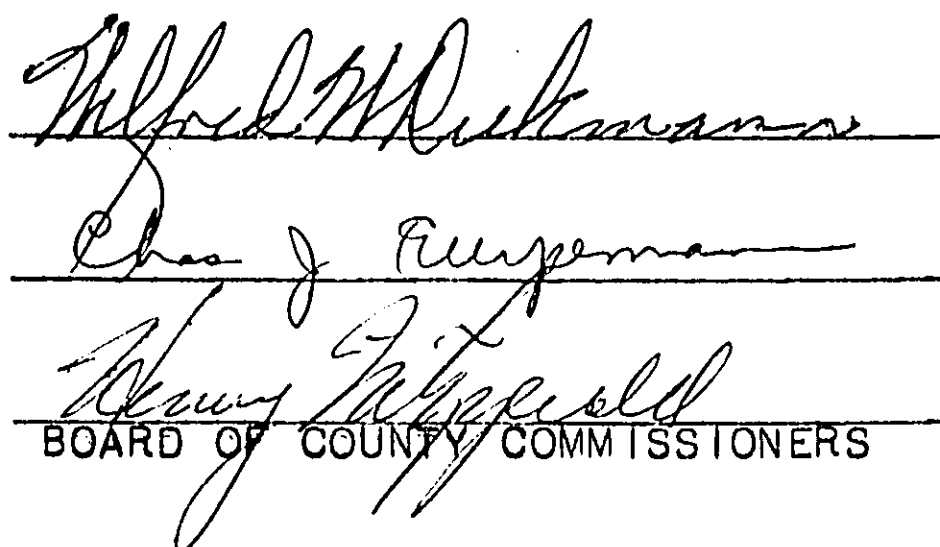 Wilfred W Dickmann
Chas J
Henry Fitzgerald
BOARD OF COUNTY COMMISSIONERS